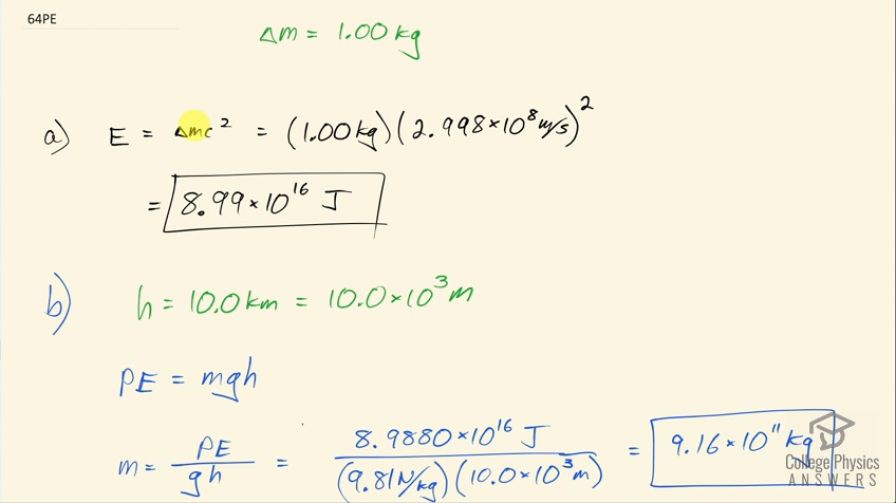 64PE
Δm = 1.00 kg
a) E = Δmc² = (1.00 kg)(2.998×10⁸ m/s)²
= 8.99×10¹⁶ J
b) h = 10.0 km = 10.0×10³ m
PE = mgh
m = PE/gh = 8.9880×10¹⁶ J/(9.81N/kg)(10.0×10³m) = 9.16×10¹¹ kg
College Physics
ANSWERS